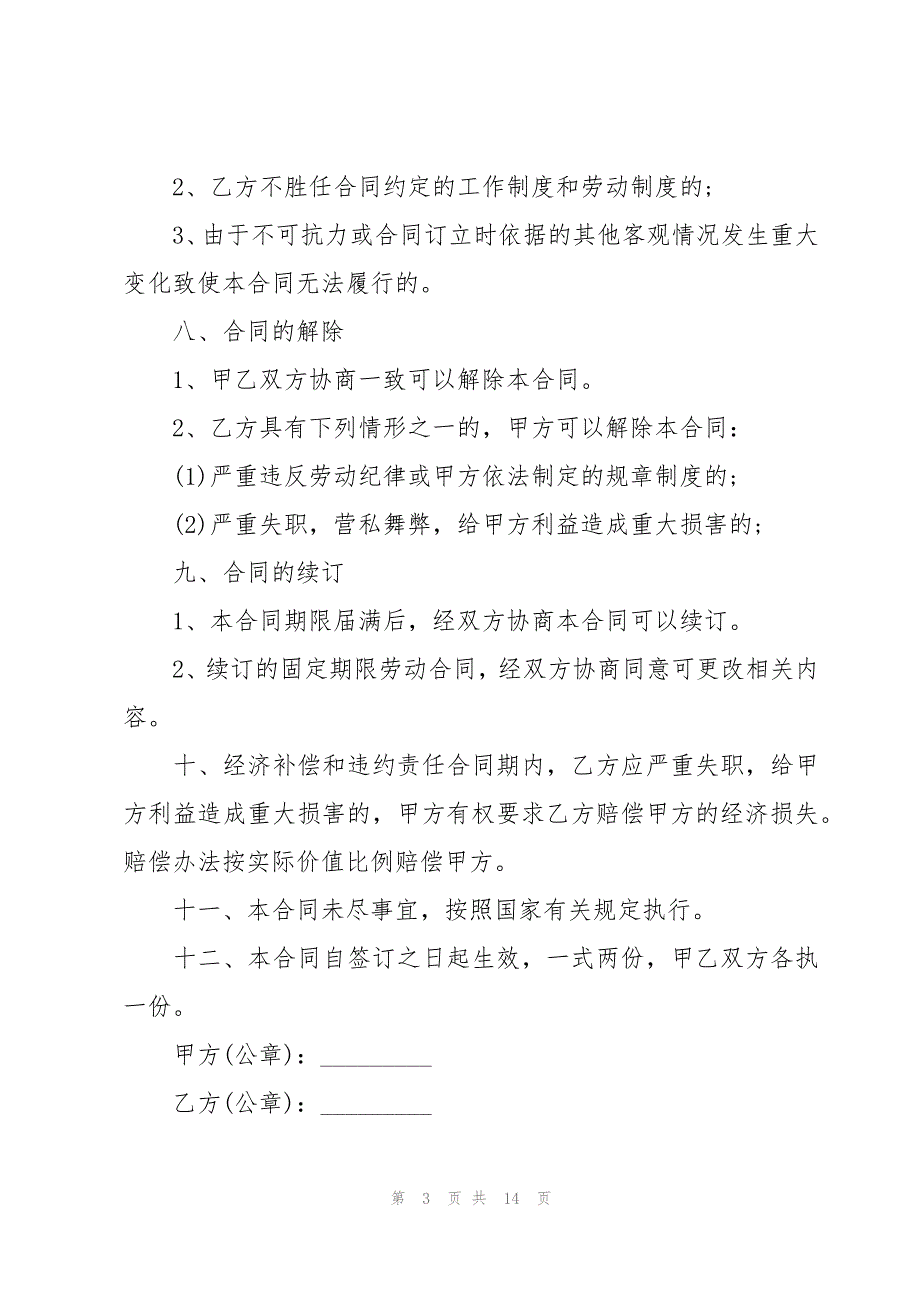 2、乙方不胜任合同约定的工作制度和劳动制度的;
3、由于不可抗力或合同订立时依据的其他客观情况发生重大
变化致使本合同无法履行的。
八、合同的解除
1、甲乙双方协商一致可以解除本合同。
2、乙方具有下列情形之一的，甲方可以解除本合同：
(1)严重违反劳动纪律或甲方依法制定的规章制度的;
(2)严重失职，营私舞弊，给甲方利益造成重大损害的;
九、合同的续订
1、本合同期限届满后，经双方协商本合同可以续订。
2、续订的固定期限劳动合同，经双方协商同意可更改相关内
容。
十、经济补偿和违约责任合同期内，乙方应严重失职，给甲
方利益造成重大损害的，甲方有权要求乙方赔偿甲方的经济损失。
赔偿办法按实际价值比例赔偿甲方。
十一、本合同未尽事宜，按照国家有关规定执行。
十二、本合同自签订之日起生效，一式两份，甲乙双方各执
一份。
甲方(公章)：_________
乙方(公章)：_________
第 3 页 共 14 页